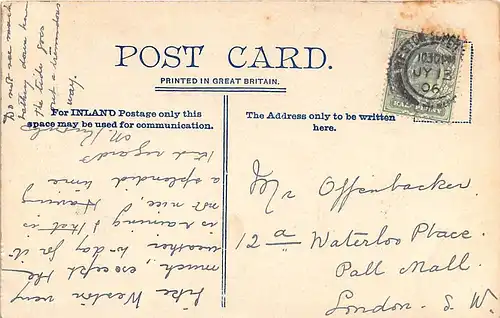 POST CARD.
PRINTED IN GREAT BRITAIN.
For INLAND Postage only this
space may be used for communication.
The Address only to be written
here.
Mr Offenbacker.
12a Waterloo Place.
Pall Mall.
London. S. W.
Like Weston very
much, except the
weather to-day for it
is raining & that is
not nice, Having
a splendid time
Kind regards
Do not see much
bathing down here
the tide goes
out a tremendous
way.
10.30 PM
JY 12
06